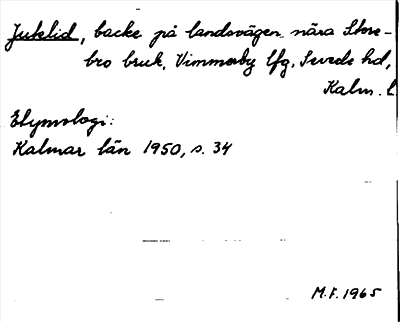 Juklid, backe på landsvägen nära Store-
bro bruk, Vimmerby lfg, Sevede hd,
Kalm. l
Etymologi:
Kalmar län 1950, s. 34
M.F. 1965